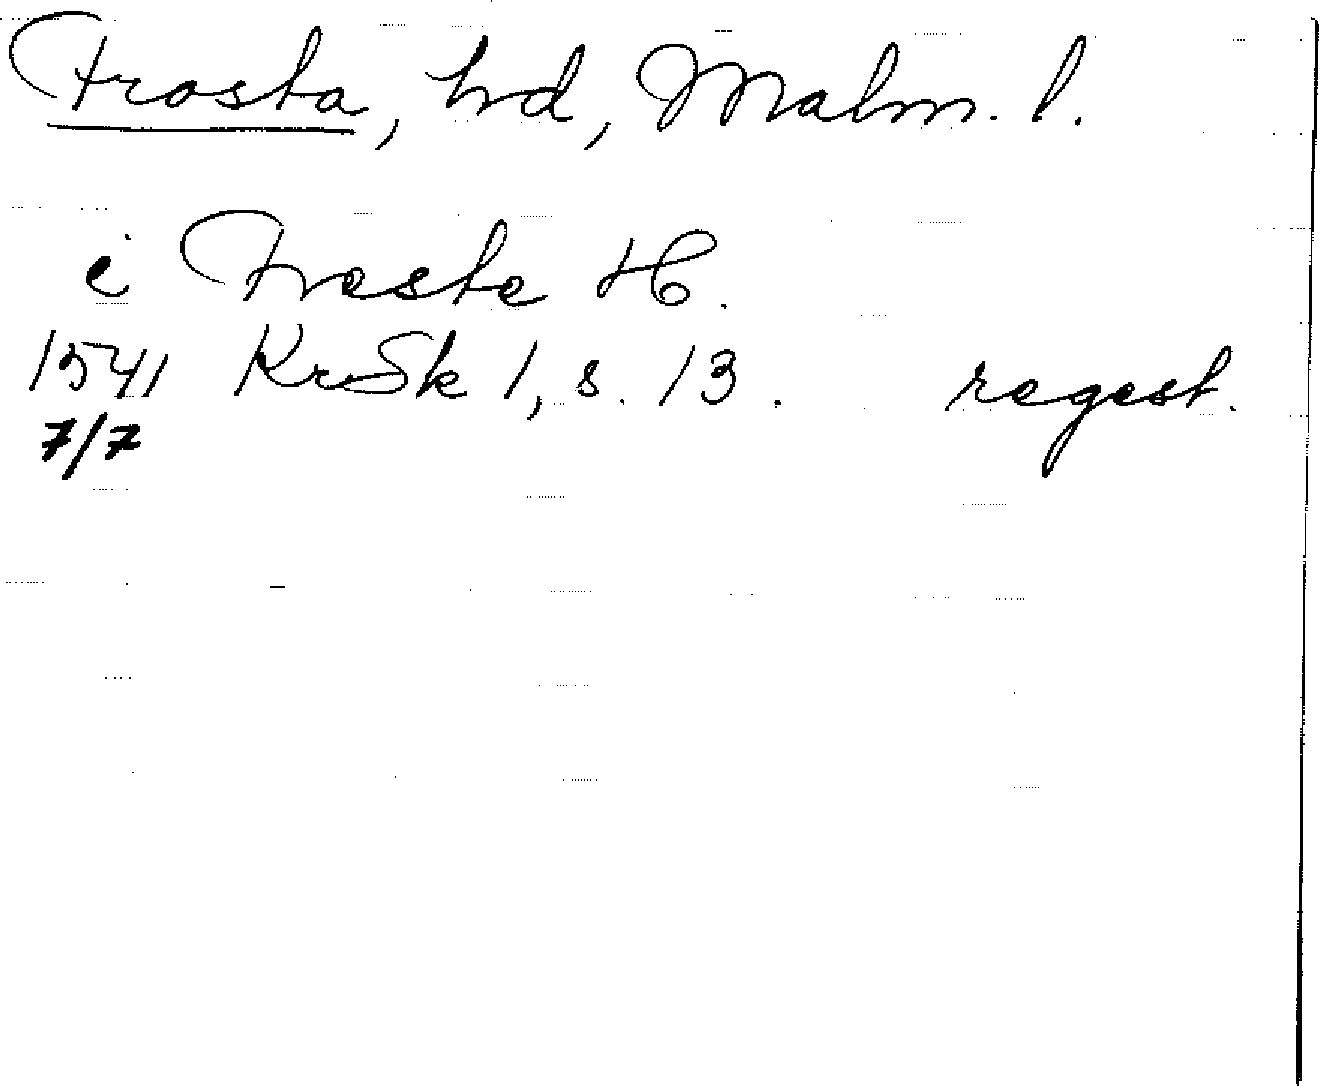 Frosta, hd, Malm. l.
i Froste H.
1541 KrSk 1, s. 13. regest.
7/7